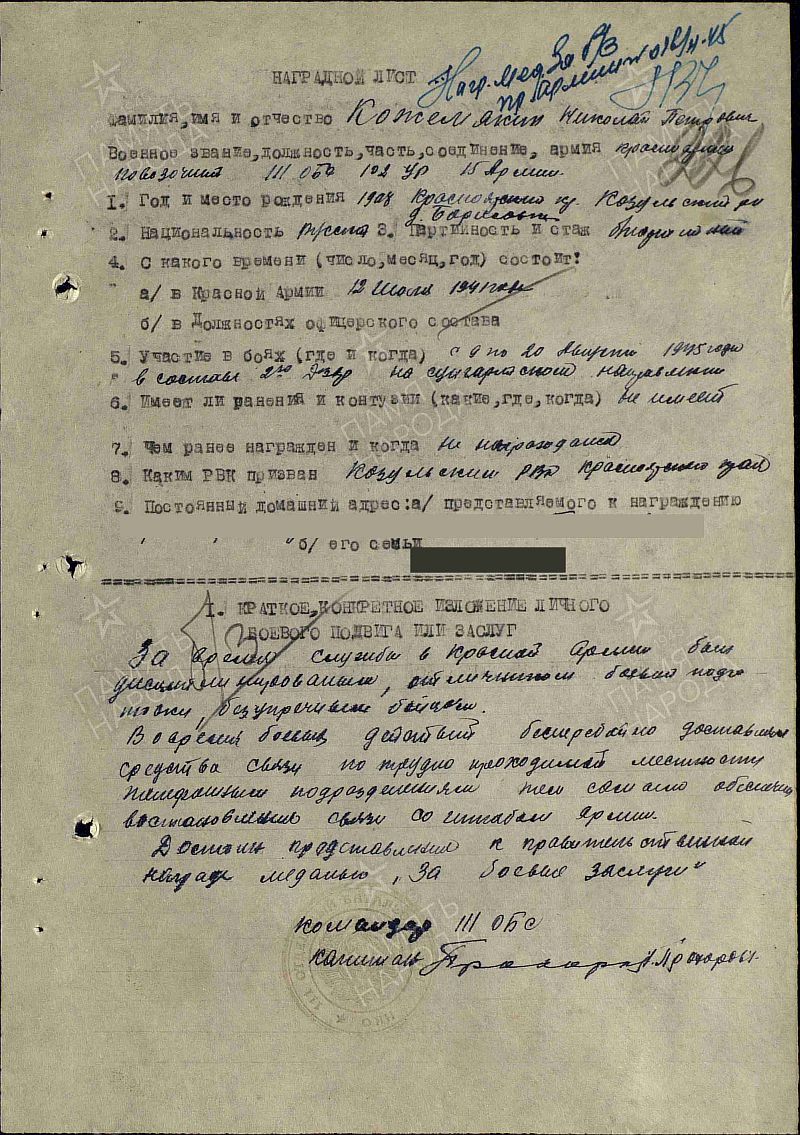 Нагр. мед. За БЗ
НАГРАДНОЙ ЛИСТ
пр. Армии №
Фамилия, имя и отчество Кожемякин Николай Петрович
Военное звание, должность, часть, соединение, армия красноармеец
повозочный III ОБС 102 УР 15 Армии.
1. Год и место рождения 1908 Красноярский кр. Козульский р-н
2. Национальность Русский 3. Партийность и стаж беспартийный
4. С какого времени (число, месяц, год) состоит:
а/ в Красной Армии 12 Июля 1941 года
б/ в Должностях офицерского состава
5. Участие в боях (где и когда) с 9 по 20 Августа 1945 года
в составе 2го на сунгарийском направлении
6. Имеет ли ранения и контузии (какие, где, когда) не имеет
7. Чем ранее награжден и когда не награждался
8. Каким РВК призван Козульским РВК Красноярского края
9. Постоянный домашний адрес: а/ представляемого к награждению
б/ его семьи
1. КРАТКОЕ, КОНКРЕТНОЕ ИЗЛОЖЕНИЕ ЛИЧНОГО
БОЕВОГО ПОДВИГА ИЛИ ЗАСЛУГ
За время службы в Красной Армии был
дисциплинированным, отличником боевой подго
товки, безупречным бойцом.
Во время боевых действий бесперебойно доставлял
средства связи по трудно проходимой местности
подразделениям тем самым обеспечил
востановление связи со штабом Армии.
Достоин представления к правительственной
награде медалью „За боевые заслуги"
Командир III ОБС
капитан Прохоров